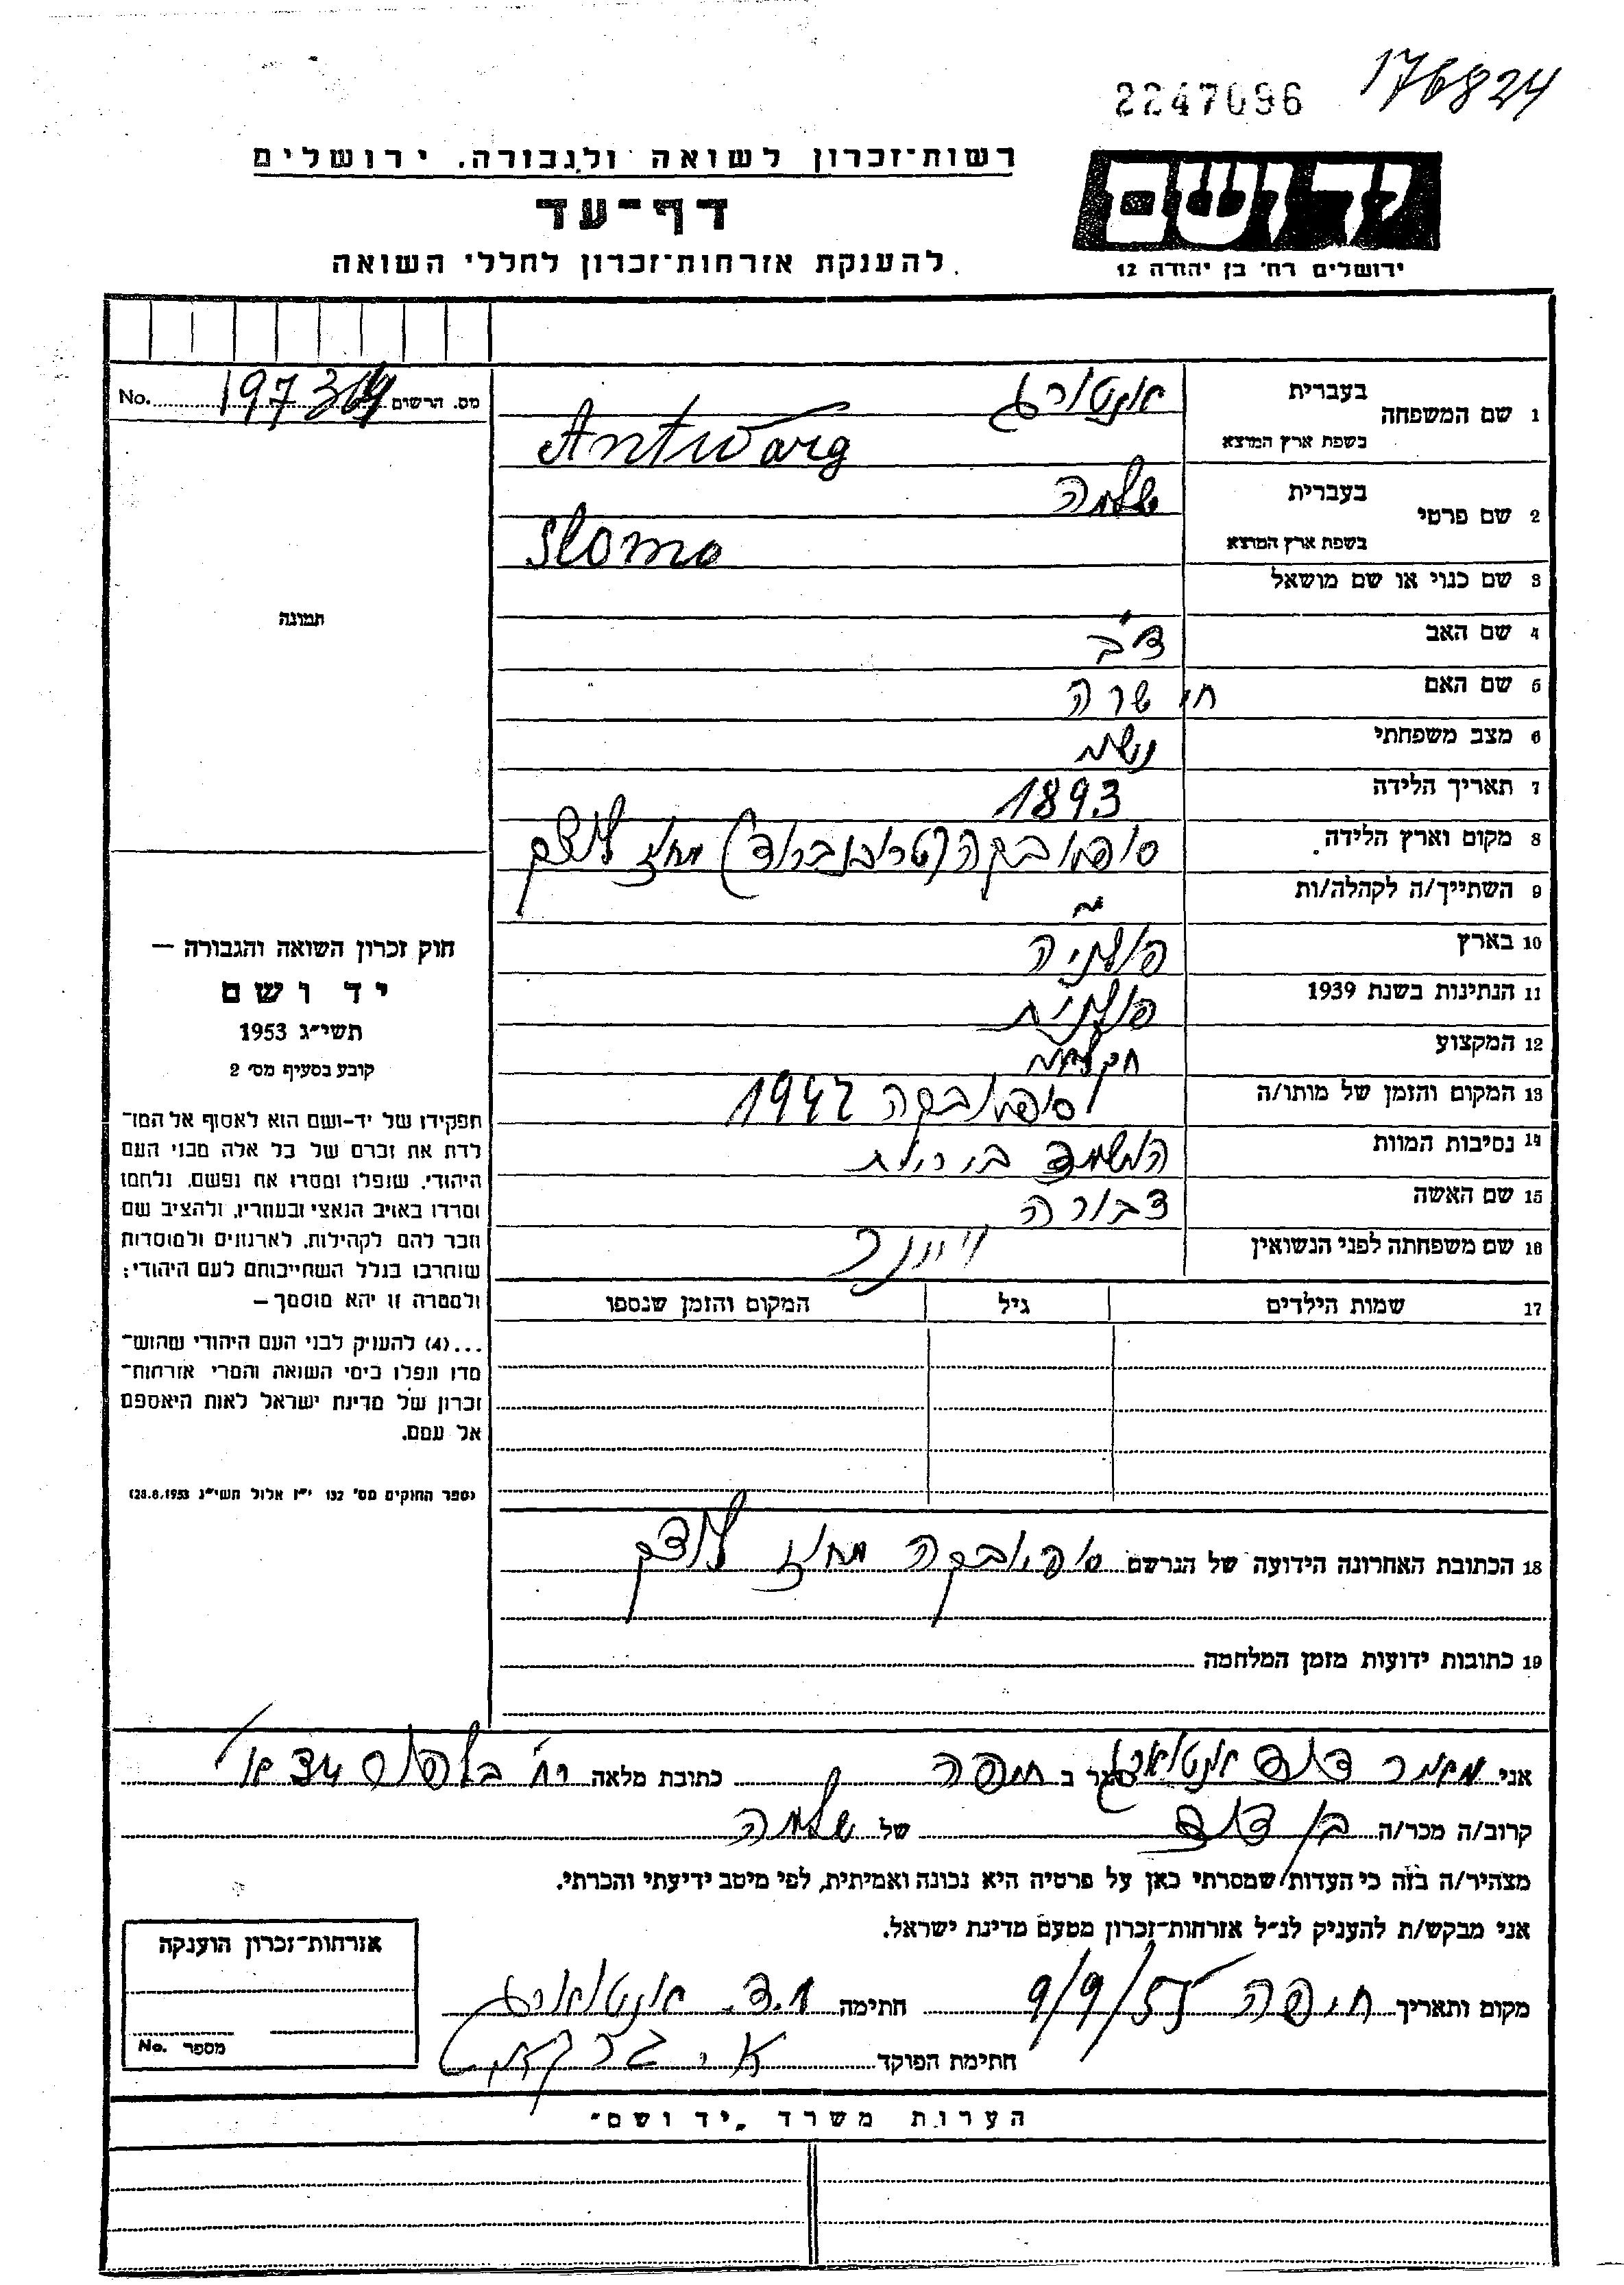 2247096 176824
יד ושם
רשות־זכרון לשואה ולגבורה, ירושלים
דף־עד
להענקת אזרחות־זכרון לחללי השואה
ירושלים רח' בן יהודה 12
מס. הרשום 197319 No.
1 שם המשפחה
בעברית
אנטוורג
בשפת ארץ המוצא
Antwarg
2 שם פרטי
בעברית
שלמה
בשפת ארץ המוצא
Sloma
3 שם כנוי או שם מושאל
תמונה
4 שם האב דב
5 שם האם חי שרה
6 מצב משפחתי נשוי
7 תאריך הלידה 1893
8 מקום וארץ הלידה סופיובקה (טרוכנברוד) מחוז לוצק
9 השתייך/ה לקהלה/ות
10 בארץ פולניה
11 הנתינות בשנת 1939 פולנית
12 המקצוע חקלאי
13 המקום והזמן של מותו/ה סופיובקה 1942
14 נסיבות המוות הושמד ביריות
15 שם האשה דבורה
16 שם משפחתה לפני הנשואין ויינר
17 שמות הילדים גיל המקום והזמן שנספו
חוק זכרון השואה והגבורה —
יד ושם
תשי״ג 1953
קובע בסעיף מס׳ 2
תפקידו של יד־ושם הוא לאסוף אל המו־
לדת את זכרם של כל אלה מבני העם
היהודי, שנפלו ומסרו את נפשם, נלחמו
ומרדו באויב הנאצי ובעוזריו, ולהציב שם
וזכר להם לקהילות, לארגונים ולמוסדות
שנחרבו בגלל השתייכותם לעם היהודי;
ולמטרה זו יהא מוסמך —
...(4) להעניק לבני העם היהודי שהוש־
מדו ונפלו בימי השואה והמרי אזרחות־
זכרון של מדינת ישראל לאות היאספם
אל עמם.
(ספר החוקים מס׳ 132 י״ז אלול תשי״ג 28.8.1953)
18 הכתובת האחרונה הידועה של הנרשם סופיובקה מחוז לוצק
19 כתובות ידועות מזמן המלחמה
אני דוד אנטווארג הגר ב חיפה כתובת מלאה רח'
קרוב/ה מכר/ה בן דוד של שלמה
מצהיר/ה בזה כי העדות שמסרתי כאן על פרטיה היא נכונה ואמיתית, לפי מיטב ידיעתי והכרתי.
אני מבקש/ת להעניק לנ״ל אזרחות־זכרון מטעם מדינת ישראל.
מקום ותאריך חיפה 9/9/55 חתימה ד. אנטווארג
חתימת הפוקד
אזרחות־זכרון הוענקה
מספר No.
הערות משרד „יד ושם״